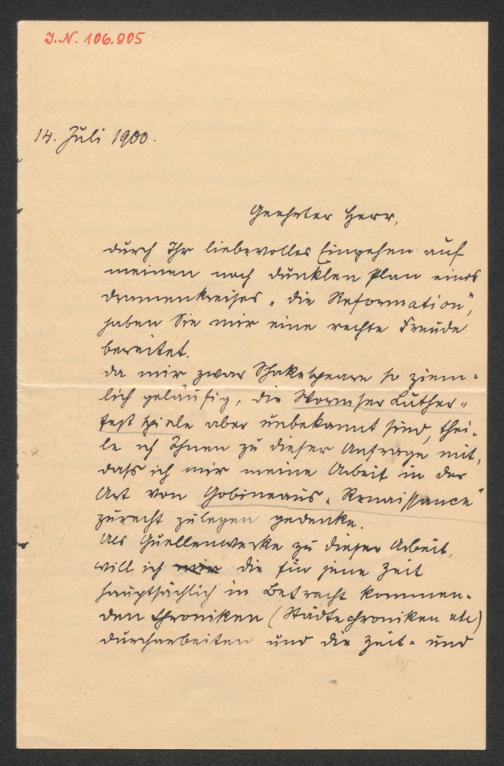 J.N. 106.905
14. Juli 1900.
Geehrter Herr,
durch Ihr liebevolles Eingehen auf
meinen noch dunklen Plan eines
Dramenkreises „die Reformation",
haben Sie mir eine rechte Freude
bereitet.
Da mir zwar Shakespeare so ziem-
lich geläufig, die Wormser Luther-
festspiele aber unbekannt sind, thei-
le ich Ihnen zu dieser Anfrage mit,
dass ich mir meine Arbeit in der
Art von Gobineaus „Renaissance"
zurecht zulegen gedenke.
Als Quellenwerke zu dieser Arbeit,
will ich mir die für jene Zeit
hauptsächlich in Betracht kommen-
den Chroniken (Städtechroniken etc)
durcharbeiten und die Zeit- und